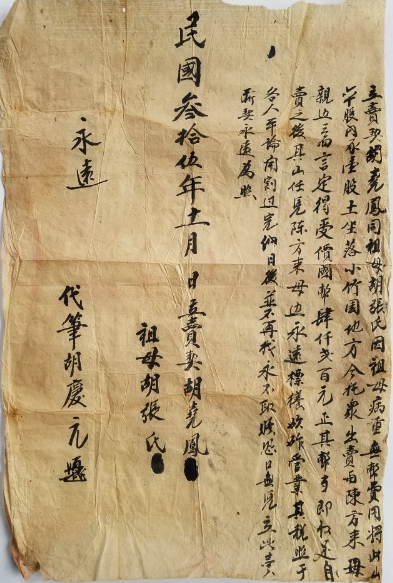 立賣契胡堯鳳同祖母胡張氏因祖母病重無幣費用將此山
股內承壹股土坐落小竹園地方今托衆出賣與陳方東母
親邊三面言定得受價國幣肆仟弍百元正其幣當即收足自
賣之後其山任憑陈方東母邊永遠標樣砍斫管業其稅照于
各人平論開割过完納日後並不再找永不取贖恐口無凭立此賣
斷契永遠為照
民國叁拾伍年十一月 日立賣契胡堯鳳
祖母胡張氏
永遠
代筆胡慶元